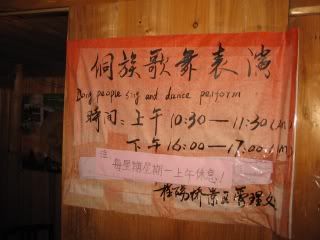 侗族歌舞表演
Dong people sing and dance perform
時间:上午10:30—11:30(AM)
下午16:00—17:00(PM)
注
每星期星期一上午休息!
程阳桥景区管理